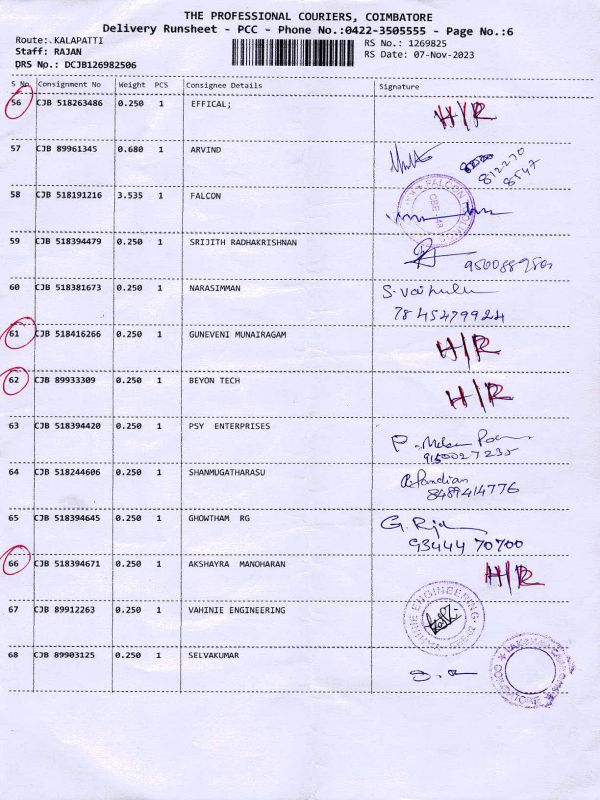 THE PROFESSIONAL COURIERS, COIMBATORE
Delivery Runsheet - PCC - Phone No.:0422-3505555 - Page No.:6
Route: KALAPATTI
RS No.: 1269825
Staff: RAJAN
RS Date: 07-Nov-2023
DRS No.: DCJB126982506
S No Consignment No Weight PCS Consignee Details Signature
56 CJB 518263486 0.250 1 EFFICAL; H/R
57 CJB 89961345 0.680 1 ARVIND
812270
8547
58 CJB 518191216 3.535 1 FALCON
FALCON
59 CJB 518394479 0.250 1 SRIJITH RADHAKRISHNAN
60 CJB 518381673 0.250 1 NARASIMMAN
7845479924
61 CJB 518416266 0.250 1 GUNEVENI MUNAIRAGAM H/R
62 CJB 89933309 0.250 1 BEYON TECH H/R
63 CJB 518394420 0.250 1 PSY ENTERPRISES
9150027235
64 CJB 518244606 0.250 1 SHANMUGATHARASU Pandian
8489414776
65 CJB 518394645 0.250 1 GHOWTHAM RG
93444 70700
66 CJB 518394671 0.250 1 AKSHAYRA MANOHARAN H/R
67 CJB 89912263 0.250 1 VAHINIE ENGINEERING
ENGINEERING
68 CJB 89903125 0.250 1 SELVAKUMAR